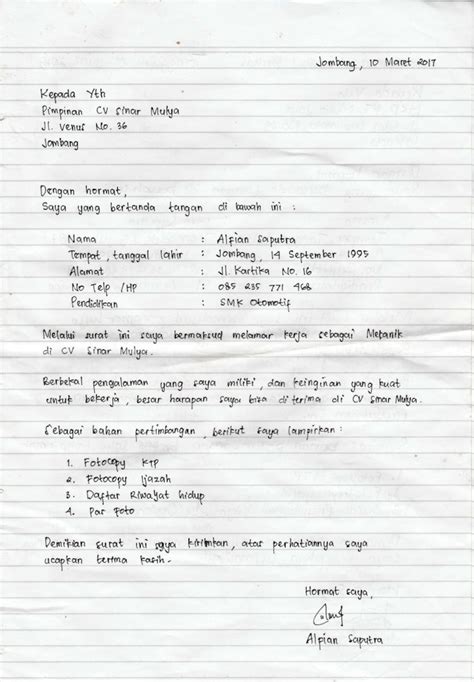 Jombang, 10 Maret 2017
Kepada Yth
Pimpinan CV Sinar Mulya
Jl. Venus No. 36
Jombang
Dengan hormat,
Saya yang bertanda tangan di bawah ini :
Nama : Alfian Saputra
Tempat, tanggal lahir : Jombang, 14 September 1995
Alamat : Jl. Kartika No. 16
No Telp /HP : 085 235 771 468
Pendidikan : SMK Otomotif
Melalui surat ini saya bermaksud melamar kerja sebagai Mekanik
di CV Sinar Mulya.
Berbekal pengalaman yang saya miliki, dan keinginan yang kuat
untuk bekerja, besar harapan saya bisa diterima di CV Sinar Mulya.
Sebagai bahan pertimbangan, berikut saya lampirkan:
1. Fotocopy KTP
2. Fotocopy Ijazah
3. Daftar Riwayat hidup
4. Pas Foto
Demikian surat ini saya kirimkan, atas perhatiannya saya
ucapkan terima kasih.
Hormat saya,
Alpian Saputra